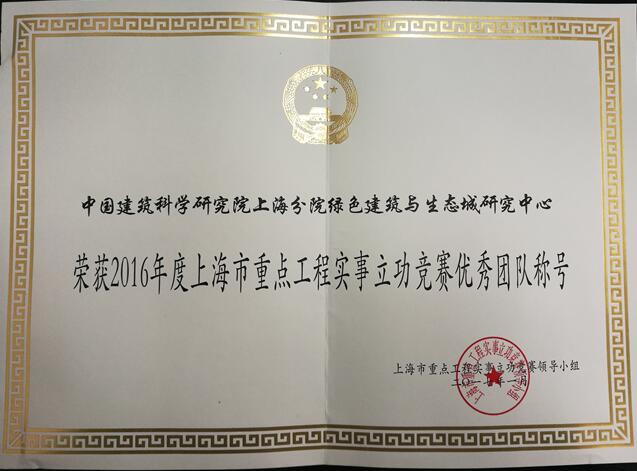 中国建筑科学研究院上海分院绿色建筑与生态城研究中心
荣获2016年度上海市重点工程实事立功竞赛优秀团队称号
上海市重点工程实事立功竞赛领导小组
二〇一七年一月